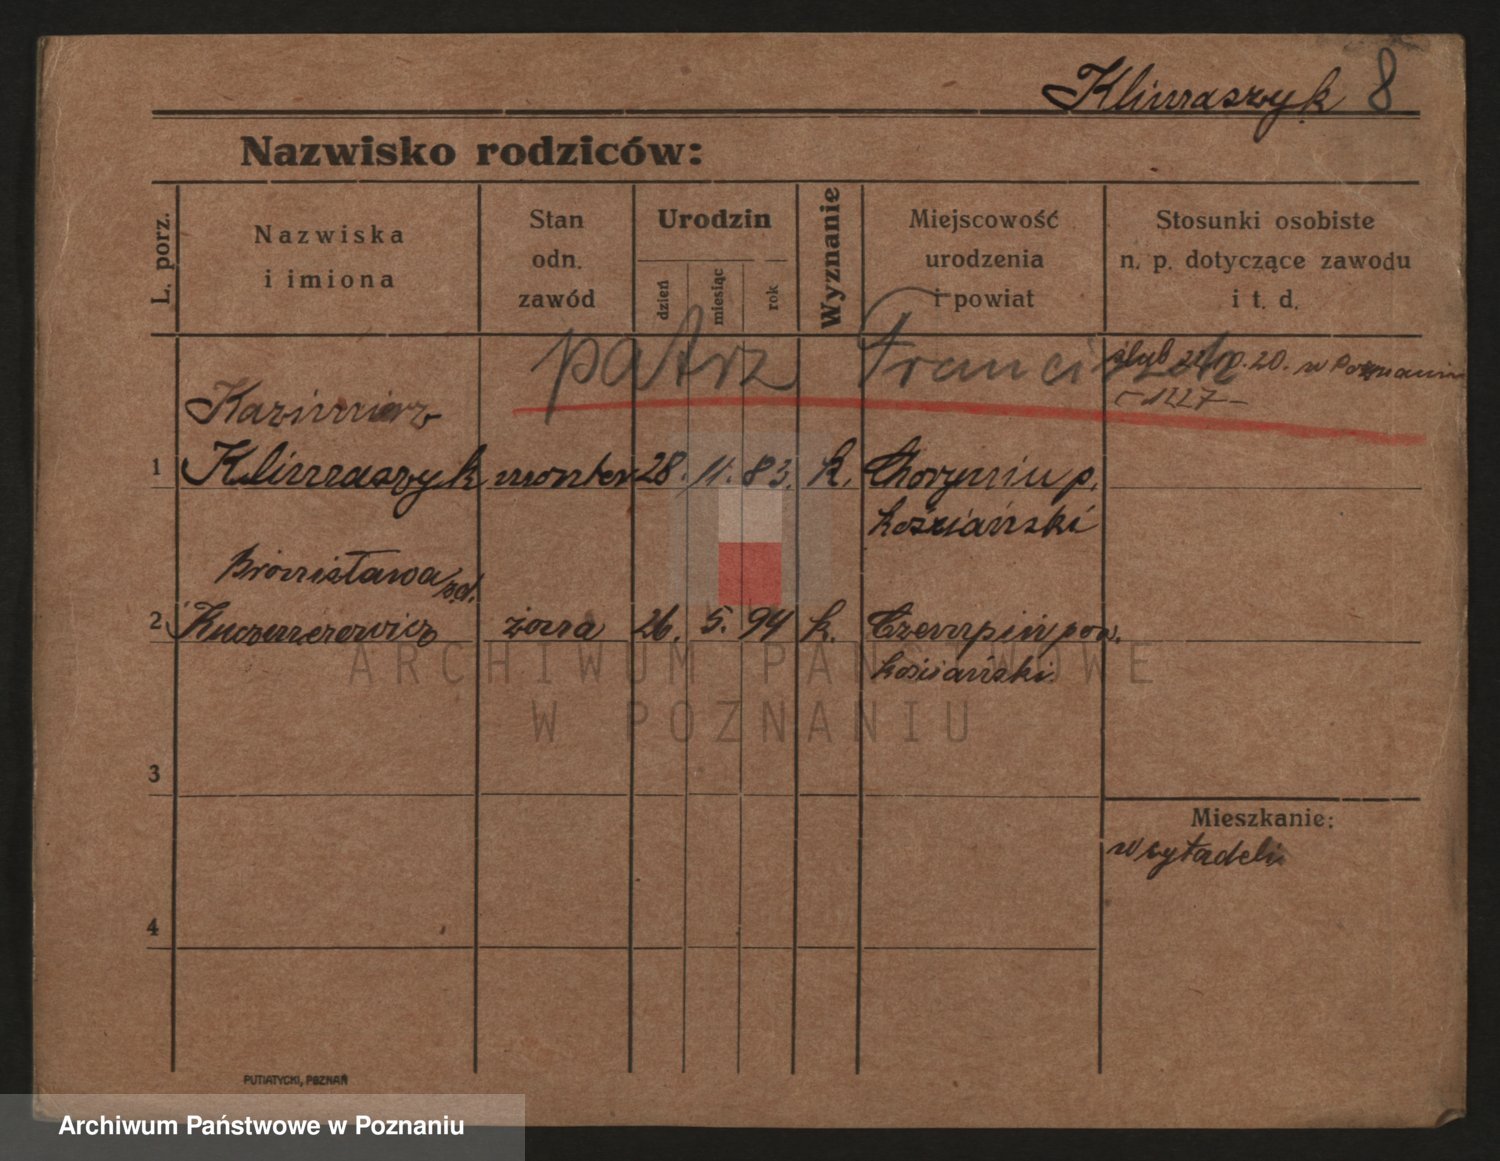 Klimaszyk 8
Nazwisko rodziców:
L. porz.
Nazwiska
i imiona
Stan
odn.
zawód
Urodzin
dzień
miesiąc
rok
Wyznanie
Miejscowość
urodzenia
i powiat
Stosunki osobiste
n. p. dotyczące zawodu
i t. d.
patrz Franciszek
ślub 20. w Poznaniu
- 1227 -
Kazimierz
1 Klimaszyk monter 28. 11. 83. k. Choryniu p.
kościański
Bronisława
2 żona 26. 5. 94 k. Czempiń pow.
kościański.
3
Mieszkanie:
w cytadeli
4
ARCHIWUM PAŃSTWOWE
W POZNANIU
PUTIATYCKI, POZNAŃ
Archiwum Państwowe w Poznaniu